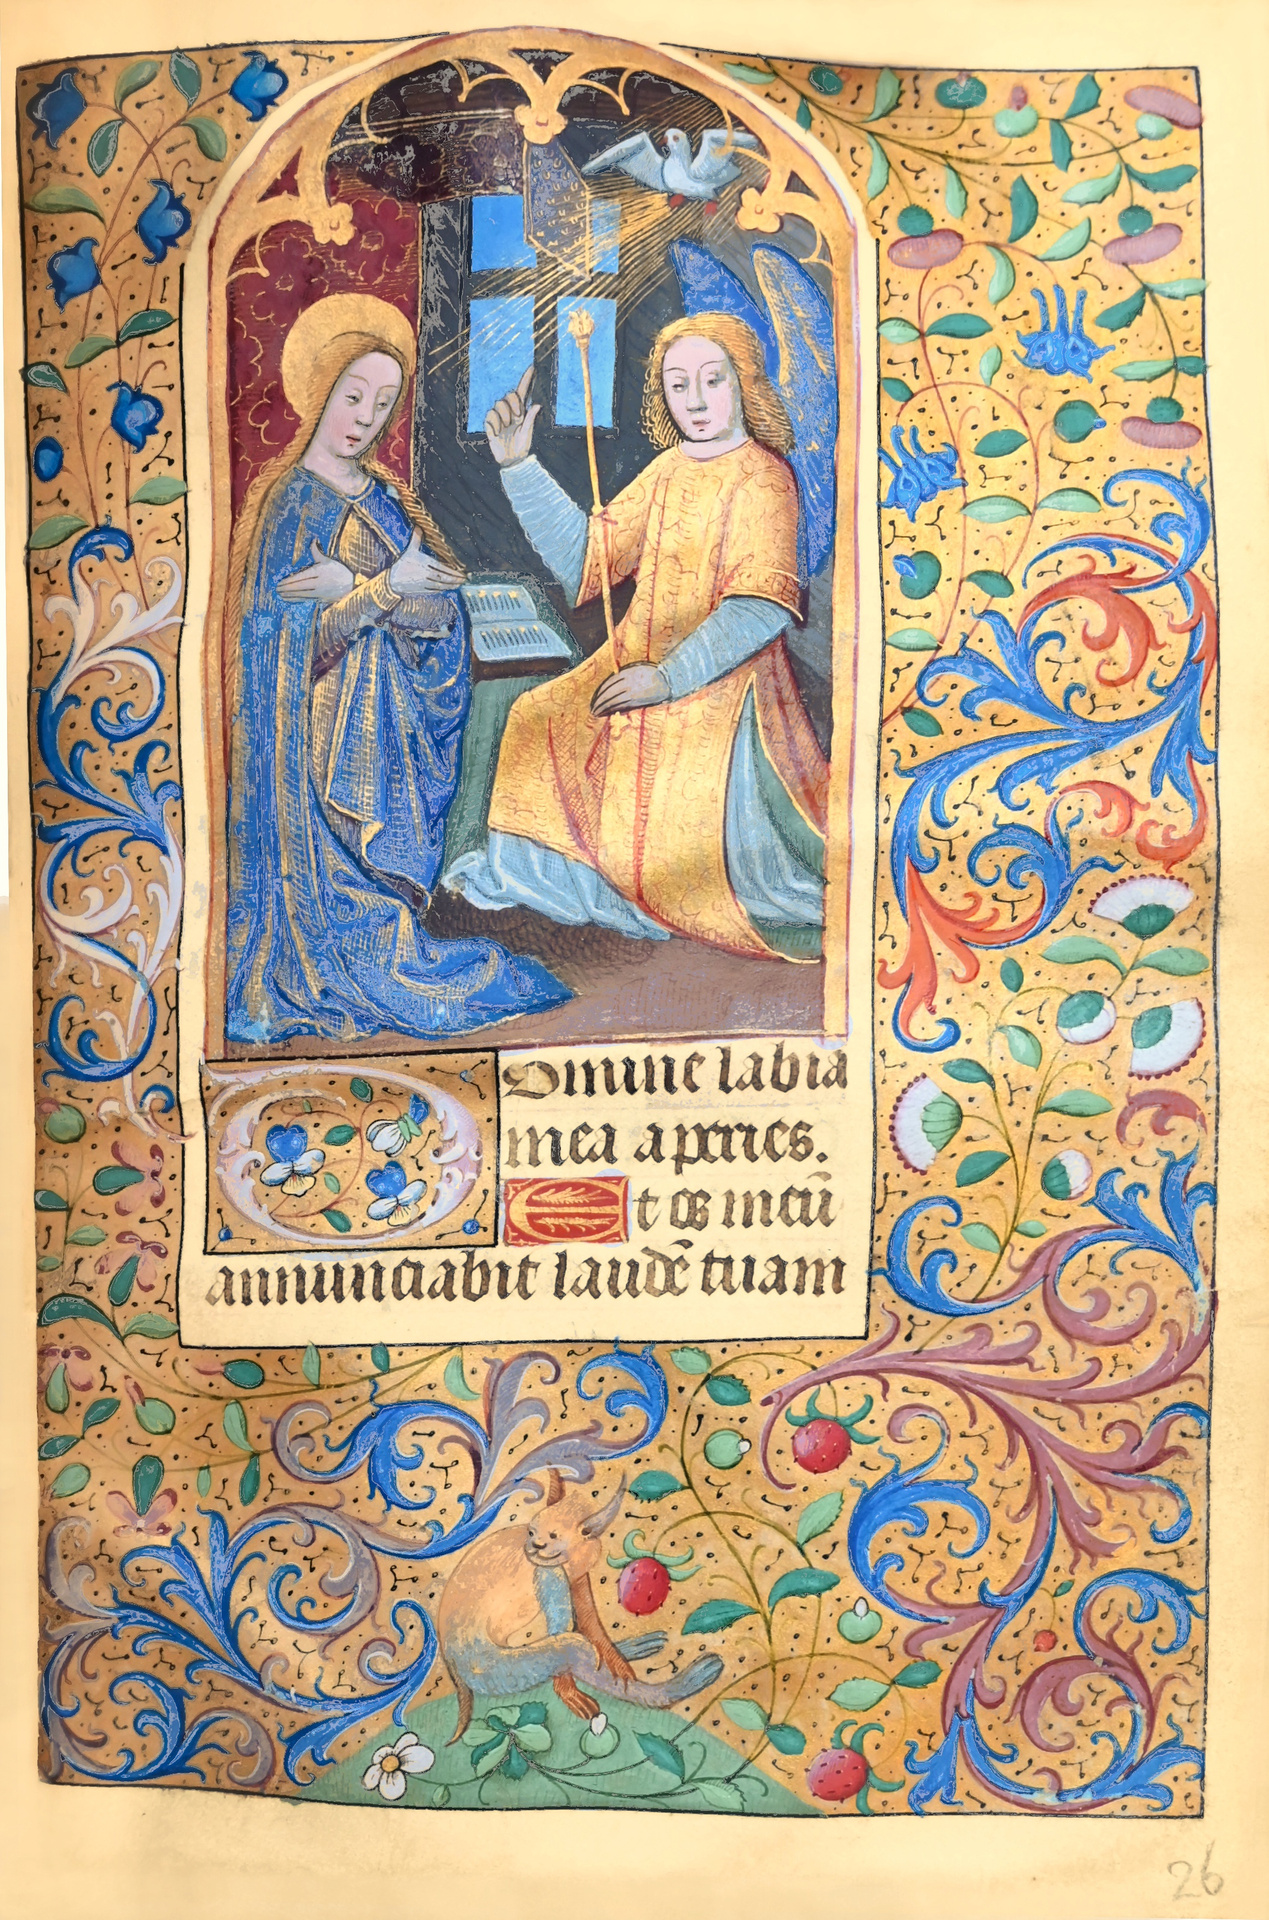 Domine labia
mea aperies.
Et os meū
annunciabit laudē tuam
26